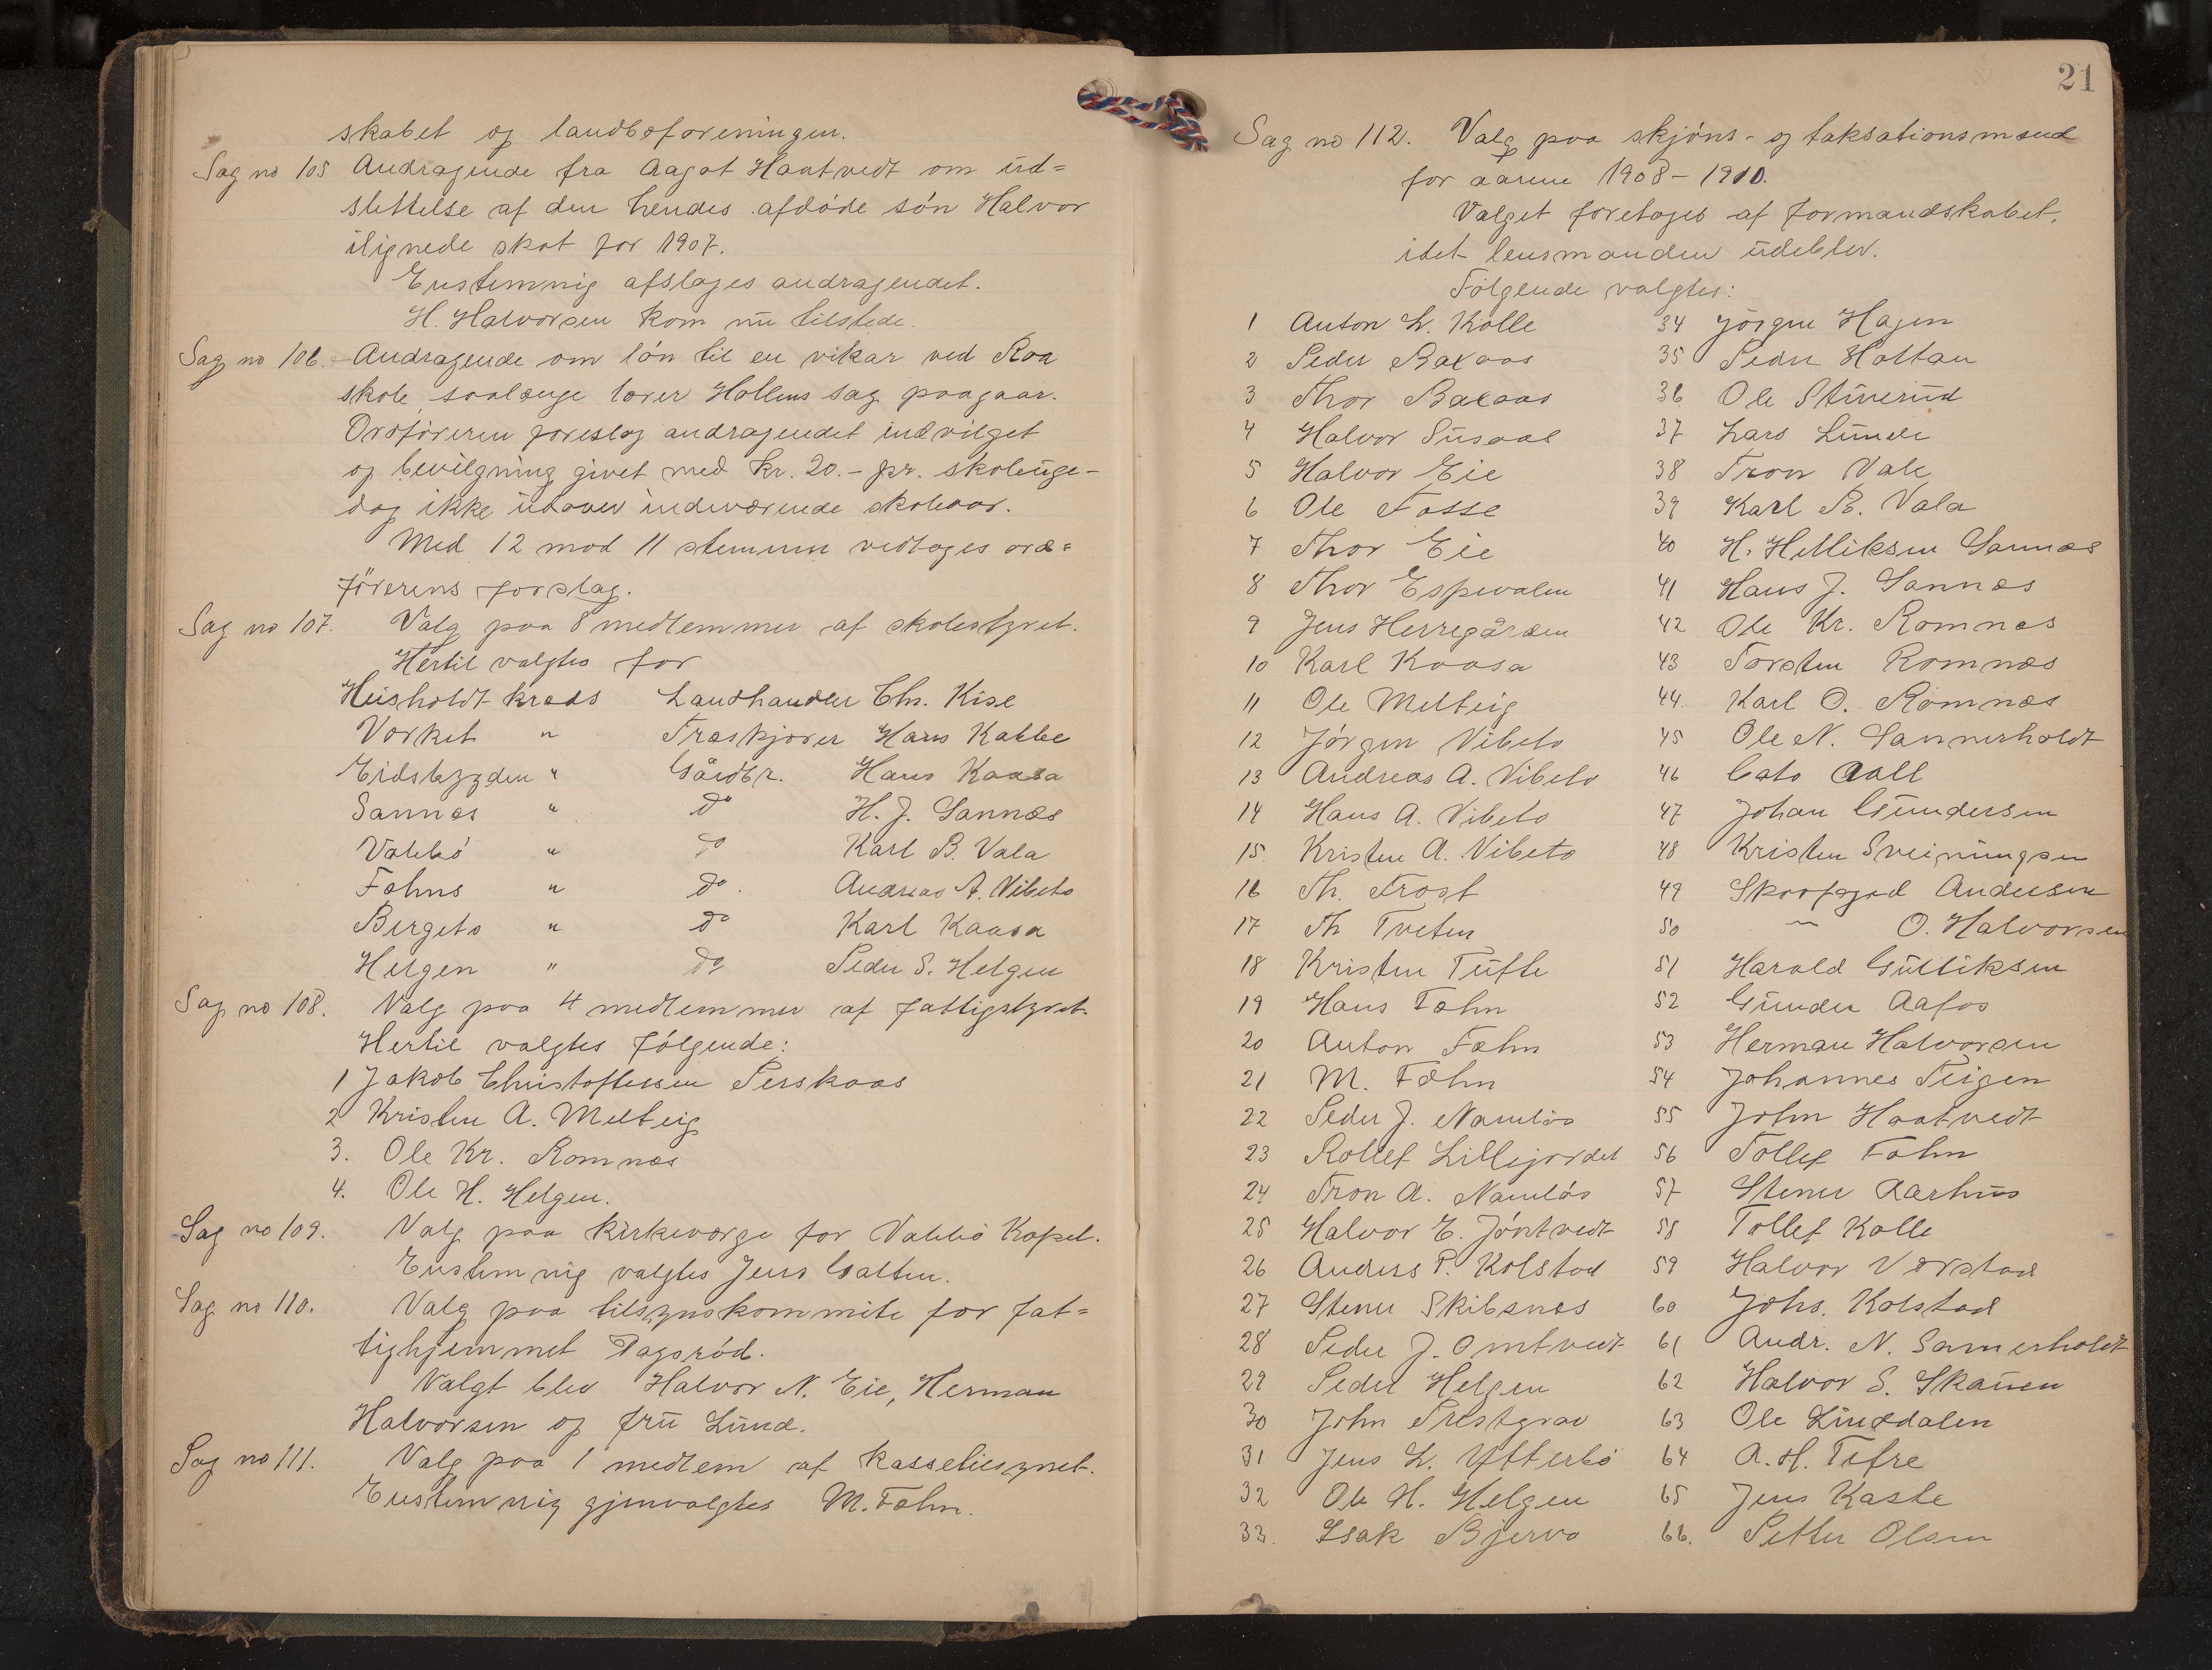 skabet og landboforeningen.
Sag no 105 Andragende fra Aagot Haatvedt om ud=
slettelse af den hendes afdøde søn Halvor
ilignede skat for 1907.
Enstemnig afslages andragendet.
H. Halvorsen kom nu tilstede.
Sag no 106. Andragende om løn til en vikar ved Roa
skole, saalænge lærer Hollens sag paagaar.
Ordføreren foreslog andragendet indvilget
og bevilgning givet med kr. 20.- pr. skoleuge-
dog ikke udover indeværende skoleaar.
Med 12 mod 11 stemmer vedtoges ord=
førerens forslag.
Sag no 107. Valg paa 8 medlemmer af skolestyret.
Hertil valgtes for
Heisholdt kreds Landhandler Chr. Kise
Værket " Træskjærer Hans Kabbe
Eidsbygden " Gårdbr. Hans Kaasa
Sannes " do H. J. Sannes
Valebø " do Karl B. Vala
Fæhns " do. Andreas A. Vibeto
Bergets " do Karl Kaasa
Helgen " do Peder S. Helgen
Sag no 108. Valg paa 4 medlemmer af fattigstyret.
Hertil valgtes følgende:
1 Jakob Christoffersen Perskaas
2 Kristen A. Melteig
3. Ole Kr. Romnæs
4. Ole H. Helgen.
Sag no 109. Valg paa kirkeværge for Valebø Kapel.
Enstemnig valgtes Jens Galten.
Sag no 110. Valg paa tilsynskommite for fat=
tighjemmet Dagsrød.
Valgt blev Halvor N. Eie, Herman
Halvorsen og fru Lund.
Sag no 111. Valg paa 1 medlem af kasseeftersynet.
Enstemnig gjenvalgtes M. Fæhn.
21
Sag no 112. Valg paa skjøns- og taksationsmænd
for aarene 1908-1910.
Valget foretages af formandskabet,
idet lensmanden udeblev.
Følgende valgtes:
1 Anton L. Kolle
2 Peder Baxaas
3 Thor Baxaas
4 Halvor Susaas
5 Halvor Eie
6 Ole Fosse
7 Thor Eie
8 Thor Espevalen
9 Jens Herregården
10 Karl Kaasa
11 Ole Melteig
12 Jørgen Vibeto
13 Andreas A. Vibeto
14 Hans A. Vibeto
15. Kristen A. Vibeto
16 Th. Frost
17 Th Tveten
18 Kristen Tufte
19 Hans Fæhn
20 Anton Fæhn
21 M. Fæhn
22 Peder J. Namløs
23 Rollef Lillejordet
24 Tron A. Namløs
25 Halvor E. Jøntvedt
26 Anders P. Kolstad
27 Stener Skibsnæs
28 Peder J. Omtvedt
29 Peder Helgen
30 John Prestgrav
31 Jens L. Ytterbø
32 Ole H. Helgen
33. Isak Bjervo
34 Jørgen Hagen
35 Peder Holtan
36 Ole Stuverud
37 Lars Lunde
38 Tron Vale
39 Karl B. Vala
40 H. Helliksen Sannæs
41 Hans J. Sannæs
42 Ole Kr. Romnæs
43 Torsten Romnæs
44. Karl O. Romnæs
45 Ole N. Sannerholdt
46 Cato Aall
47 Johan Gundersen
48 Kristen Sveinungsen
49 Skovfoged Andersen
50 — O. Halvorsen
51 Harald Gulliksen
52 Gunder Aafos
53 Herman Halvorsen
54 Johannes Teigen
55 John Haatvedt
56 Tollef Fæhn
57 Stener Aarhus
58 Tollef Kolle
59 Halvor Verstad
60 Johs. Kolstad
61 Andr. N. Sannerholdt
62 Halvor S. Skauen
63 Ole Linddalen
64 A. H. Tefre
65 Jens Kaste
66. Petter Olsen